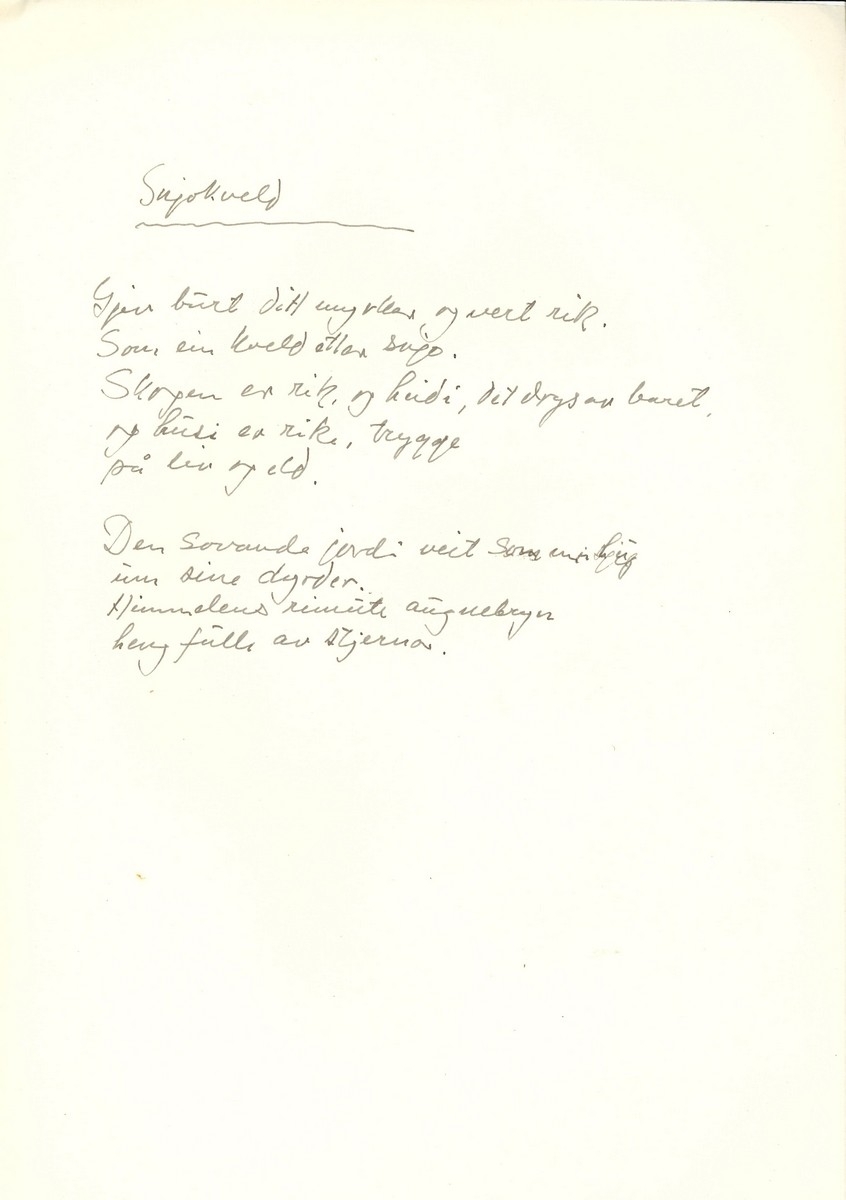 Snjokveld
Gjev burt ditt myrker, og vert rik.
Som ein kveld etter snjo.
Skogen er rik, og heidi, det drys av baret,
og husi er rike, trygge
på liv og eld.
Den sovande jordi veit som min hug
um sine dyrder.
Himmelens rimute augnebryn
heng fulle av stjernor.